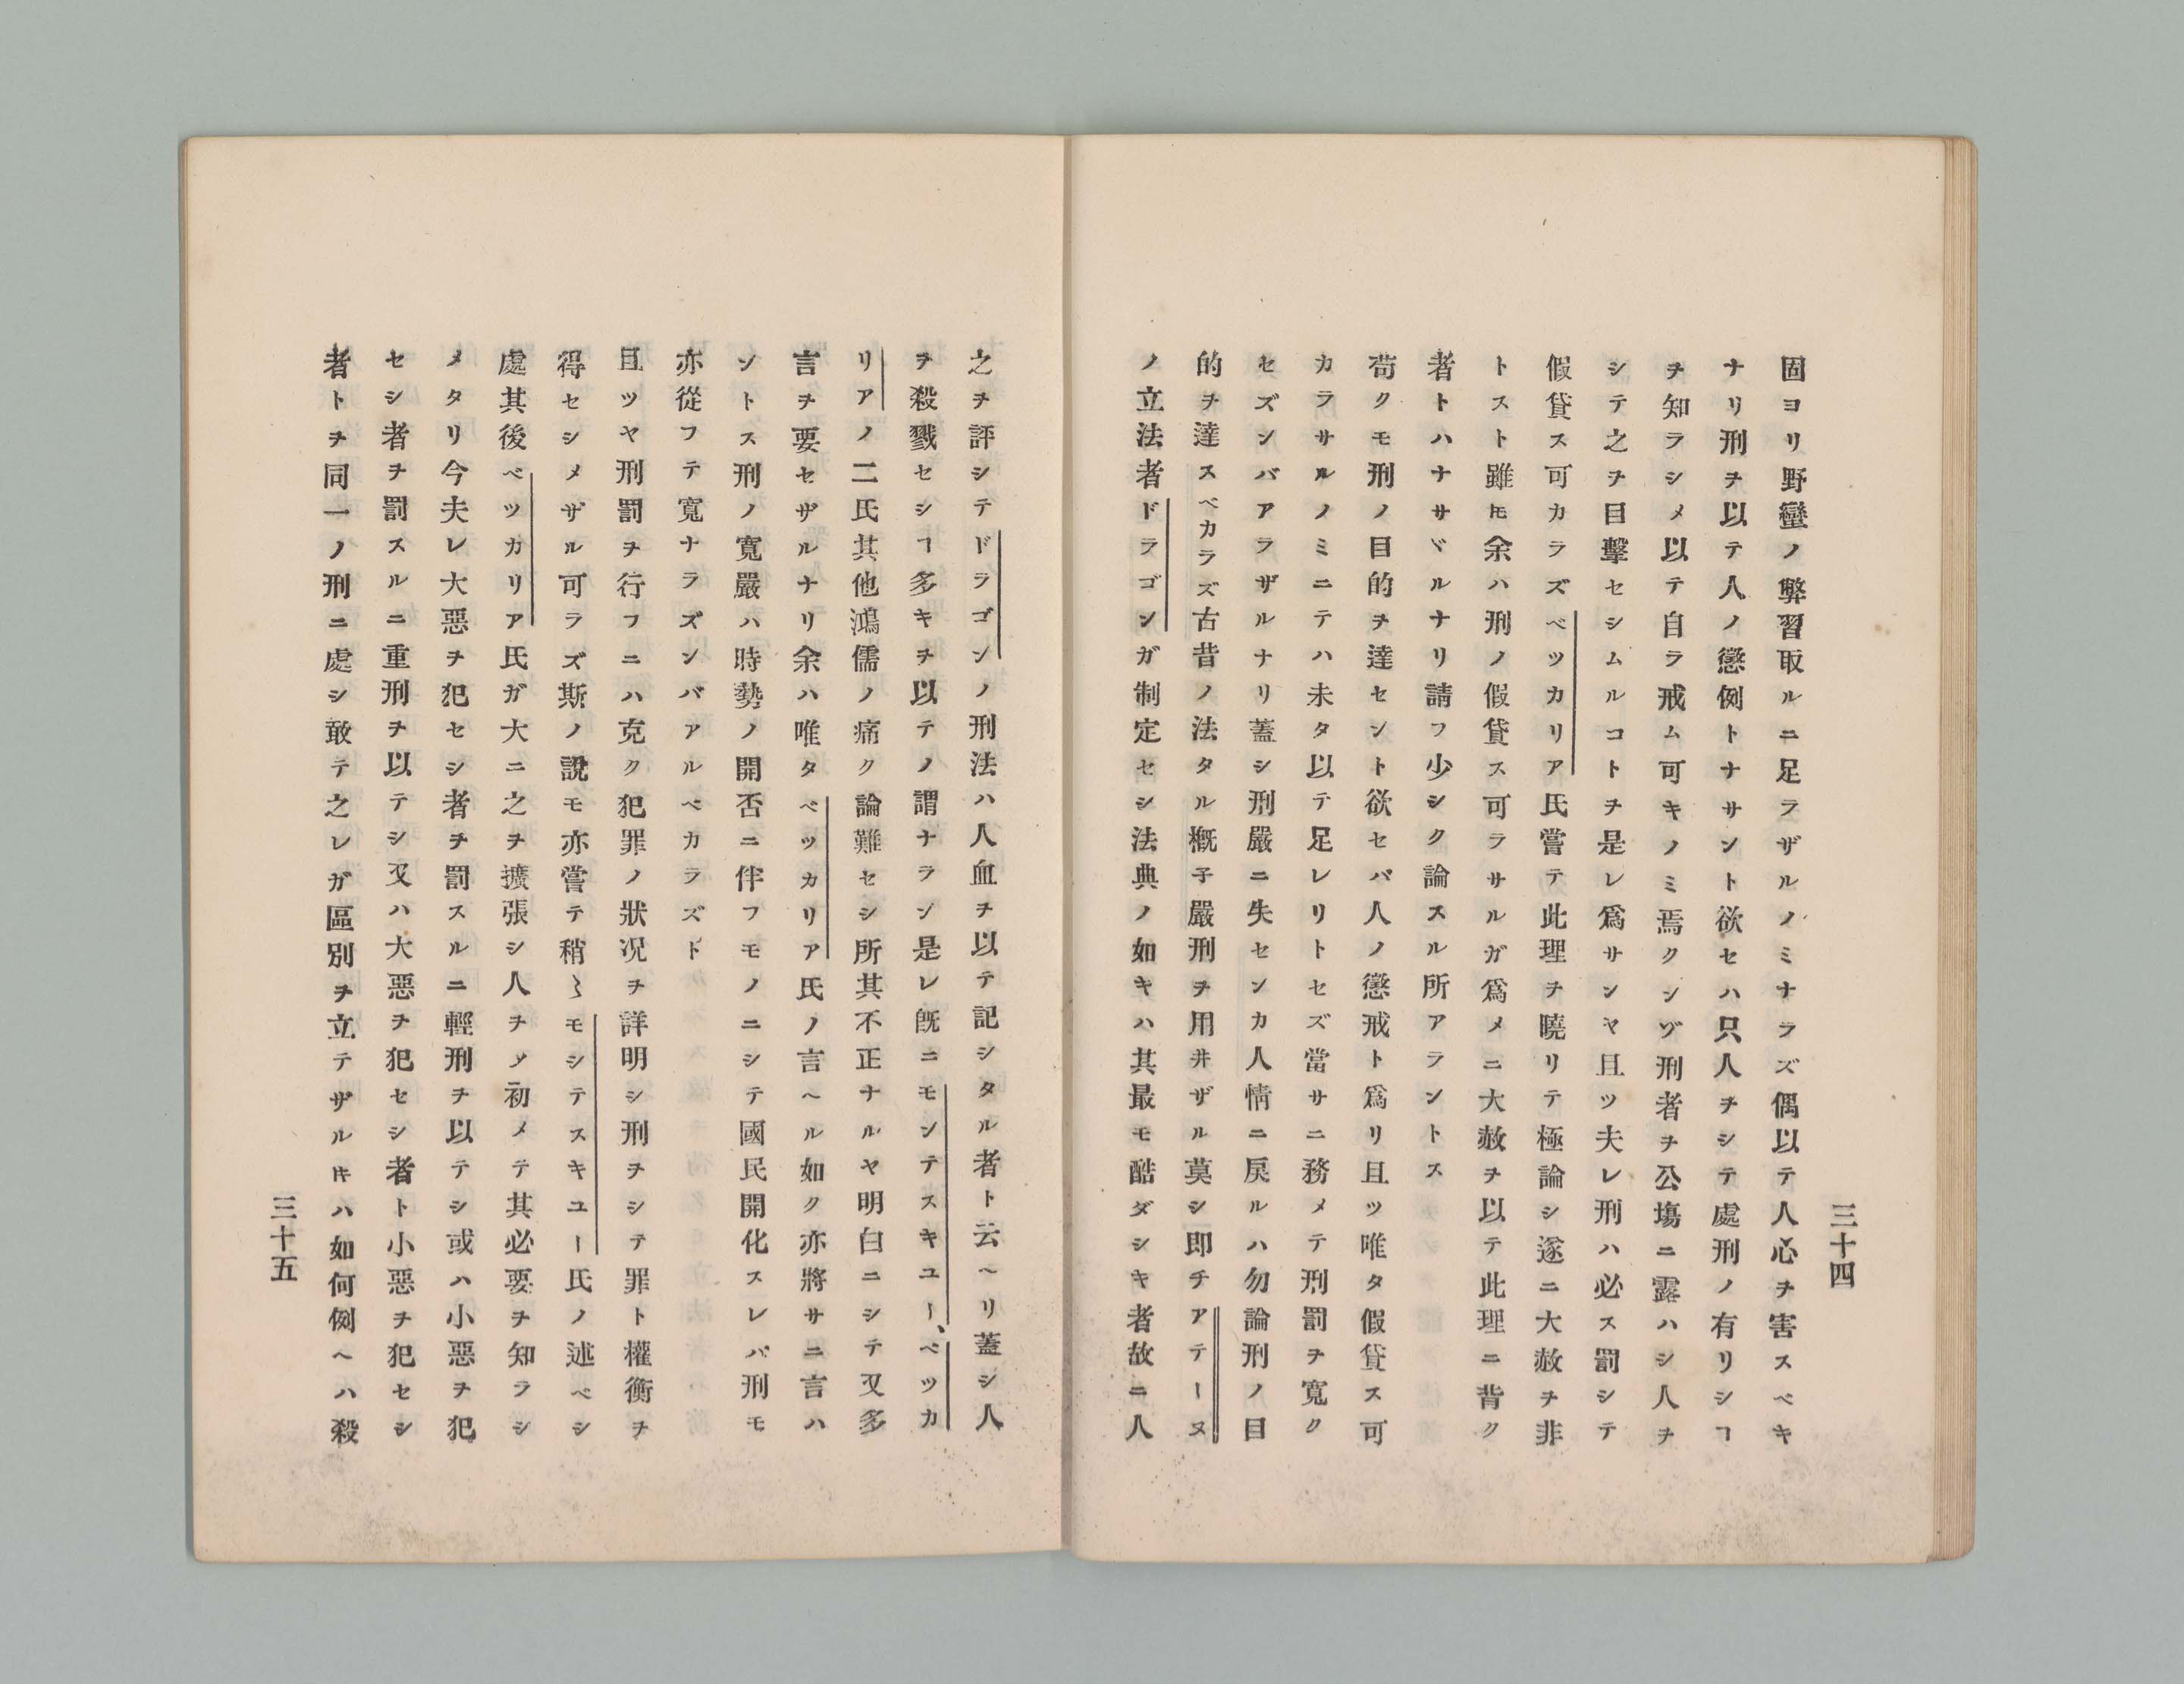 固ヨリ野蠻ノ弊習取ルニ足ラザルノミナラズ偶以テ人心ヲ害スベキ
ナリ刑ヲ以テ人ノ懲例トナサント欲セハ只人ヲシテ處刑ノ有リシヿ
ヲ知ラシメ以テ自ラ戒ム可キノミ焉クンゾ刑者ヲ公塲ニ露ハシ人ヲ
シテ之ヲ目擊セシムルコトヲ是レ爲サンヤ且ツ夫レ刑ハ必ス罰シテ
假貸ス可カラズベツカリア氏嘗テ此理ヲ曉リテ極論シ遂ニ大赦ヲ非
トスト雖𪜈余ハ刑ノ假貸ス可ラサルガ爲メニ大赦ヲ以テ此理ニ背ク
者トハナサヾルナリ請フ少シク論スル所アラントス
苟クモ刑ノ目的ヲ達セント欲セバ人ノ懲戒ト爲リ且ツ唯タ假貸ス可
カラサルノミニテハ未タ以テ足レリトセズ當サニ務メテ刑罰ヲ寬ク
セズンバアラザルナリ蓋シ刑嚴ニ失センカ人情ニ戾ルハ勿論刑ノ目
的ヲ達スベカラズ古昔ノ法タル槪子嚴刑ヲ用井ザル莫シ即チアテーヌ
ノ立法者ドラゴンガ制定セシ法典ノ如キハ其最モ酷ダシキ者故ニ人
三十四
之ヲ評シテドラゴンノ刑法ハ人血ヲ以テ記シタル者ト云ヘリ蓋シ人
ヲ殺戮セシヿ多キヲ以テノ謂ナラン是レ既ニモンテスキユー、ベツカ
リアノ二氏其他鴻儒ノ痛ク論難セシ所其不正ナルヤ明白ニシテ又多
言ヲ要セザルナリ余ハ唯タベツカリア氏ノ言ヘル如ク亦將サニ言ハ
ントス刑ノ寬嚴ハ時勢ノ開否ニ伴フモノニシテ國民開化スレバ刑モ
亦從フテ寬ナラズンバアルベカラズト
且ツヤ刑罰ヲ行フニハ克ク犯罪ノ狀况ヲ詳明シ刑ヲシテ罪ト權衡ヲ
得セシメザル可ラズ斯ノ說モ亦嘗テ稍〻モシテスキユー氏ノ述ベシ
處其後ベツカリア氏ガ大ニ之ヲ擴張シ人ヲ〆初メテ其必要ヲ知ラシ
メタリ今夫レ大惡ヲ犯セシ者ヲ罰スルニ輕刑ヲ以テシ或ハ小惡ヲ犯
セシ者ヲ罰スルニ重刑ヲ以テシ又ハ大惡ヲ犯セシ者ト小惡ヲ犯セシ
者トヲ同一ノ刑ニ處シ敢テ之レガ區別ヲ立テザル𪜈ハ如何例ヘハ殺
三十五